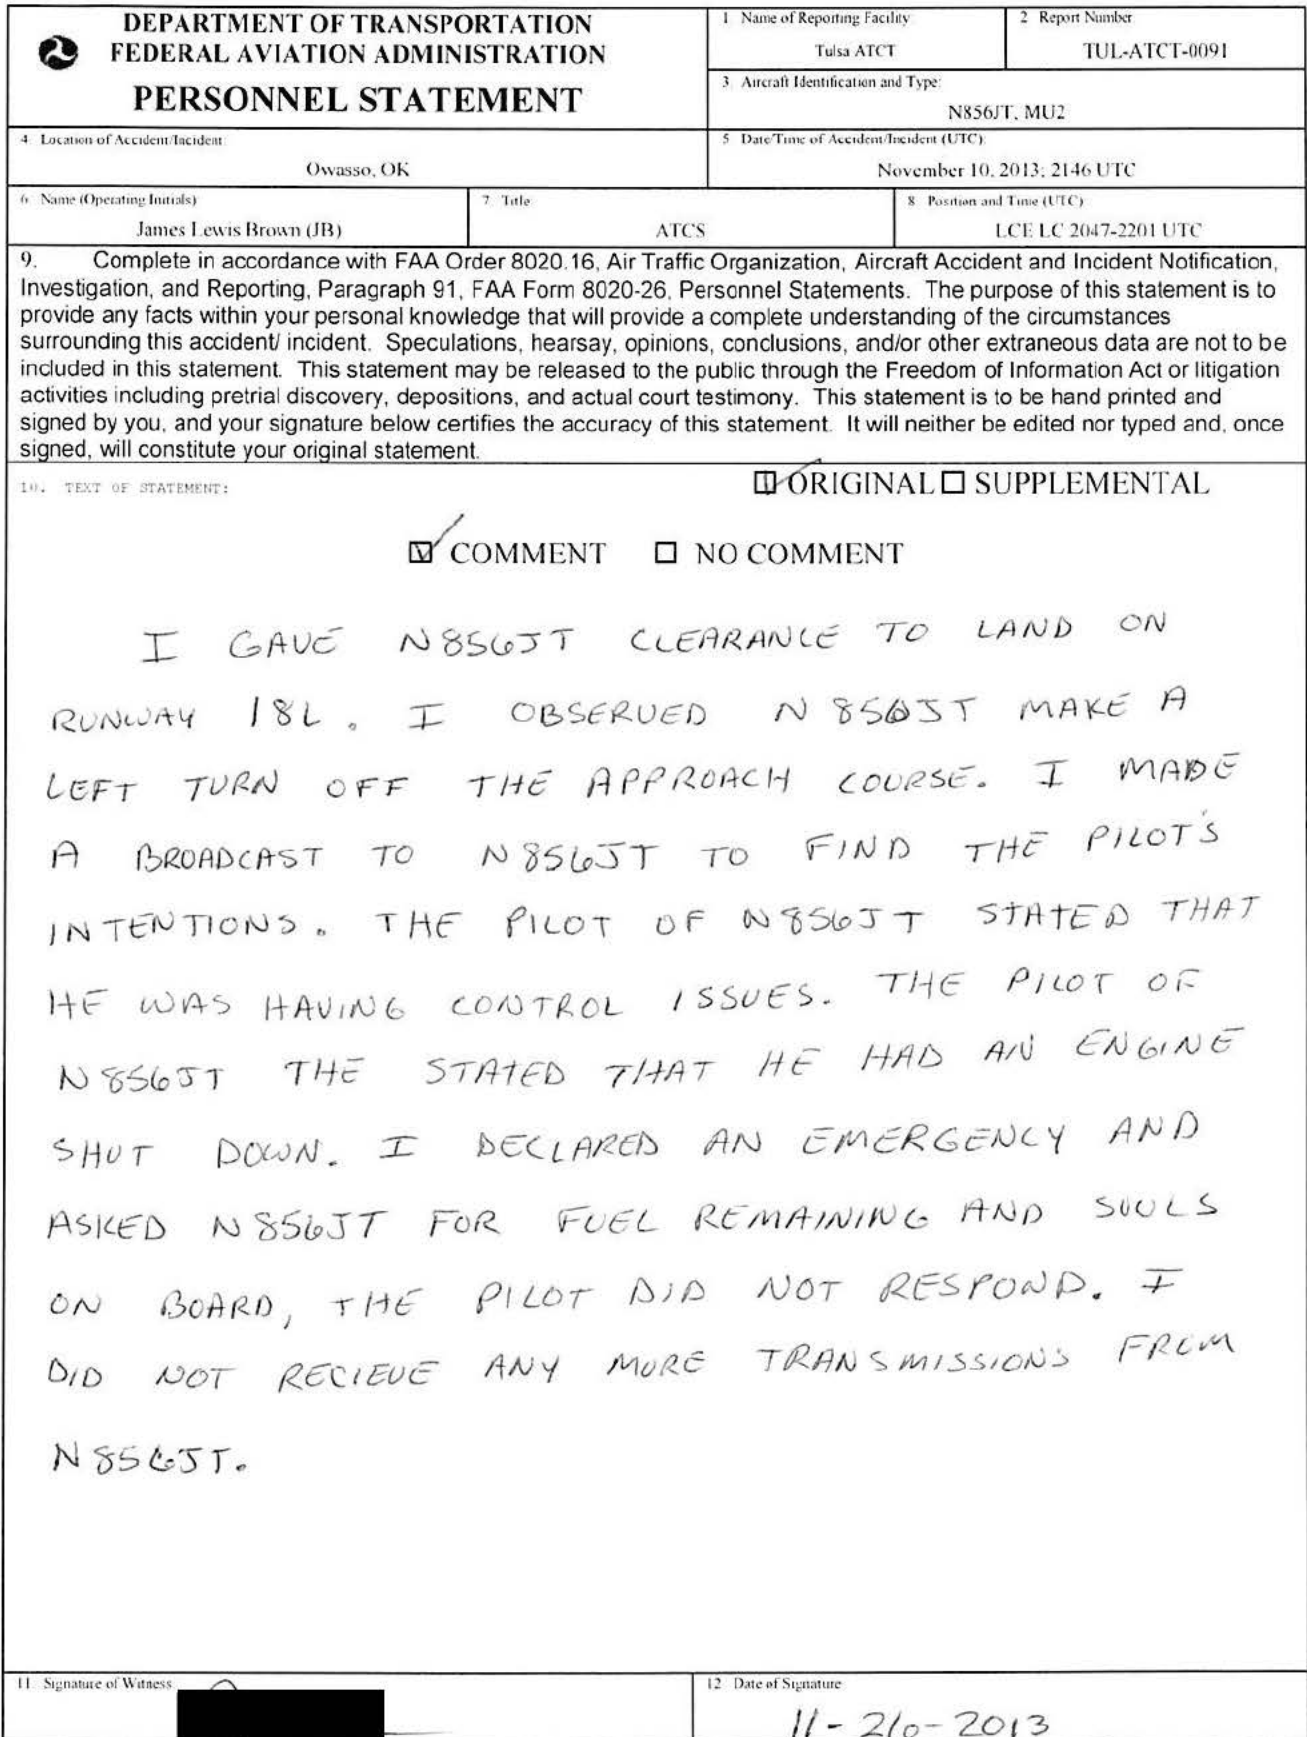 DEPARTMENT OF TRANSPORTATION
FEDERAL AVIATION ADMINISTRATION
PERSONNEL STATEMENT
1 Name of Reporting Facility
Tulsa ATCT
2 Report Number
TUL-ATCT-0091
3 Aircraft Identification and Type:
N856JT, MU2
4 Location of Accident/Incident:
Owasso, OK
5 Date/Time of Accident/Incident (UTC)
November 10, 2013; 2146 UTC
6 Name (Operating Initials)
James Lewis Brown (JB)
7 Title
ATCS
8 Position and Time (UTC)
LCE LC 2047-2201 UTC
9. Complete in accordance with FAA Order 8020.16, Air Traffic Organization, Aircraft Accident and Incident Notification,
Investigation, and Reporting, Paragraph 91, FAA Form 8020-26, Personnel Statements. The purpose of this statement is to
provide any facts within your personal knowledge that will provide a complete understanding of the circumstances
surrounding this accident/ incident. Speculations, hearsay, opinions, conclusions, and/or other extraneous data are not to be
included in this statement. This statement may be released to the public through the Freedom of Information Act or litigation
activities including pretrial discovery, depositions, and actual court testimony. This statement is to be hand printed and
signed by you, and your signature below certifies the accuracy of this statement. It will neither be edited nor typed and, once
signed, will constitute your original statement.
10. TEXT OF STATEMENT:
ORIGINAL SUPPLEMENTAL
COMMENT NO COMMENT
I GAVE N856JT CLEARANCE TO LAND ON
RUNWAY 18L. I OBSERVED N856JT MAKE A
LEFT TURN OFF THE APPROACH COURSE. I MADE
A BROADCAST TO N856JT TO FIND THE PILOT'S
INTENTIONS. THE PILOT OF N856JT STATED THAT
HE WAS HAVING CONTROL ISSUES. THE PILOT OF
N856JT THE STATED THAT HE HAD AN ENGINE
SHUT DOWN. I DECLARED AN EMERGENCY AND
ASKED N856JT FOR FUEL REMAINING AND SOULS
ON BOARD, THE PILOT DID NOT RESPOND. I
DID NOT RECIEVE ANY MORE TRANSMISSIONS FROM
N856JT.
11 Signature of Witness
12 Date of Signature
11-26-2013